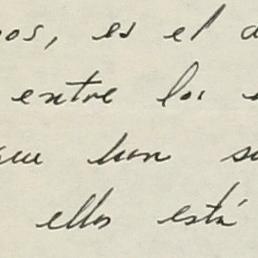 os, es el a
entre los
que han s
ellos está